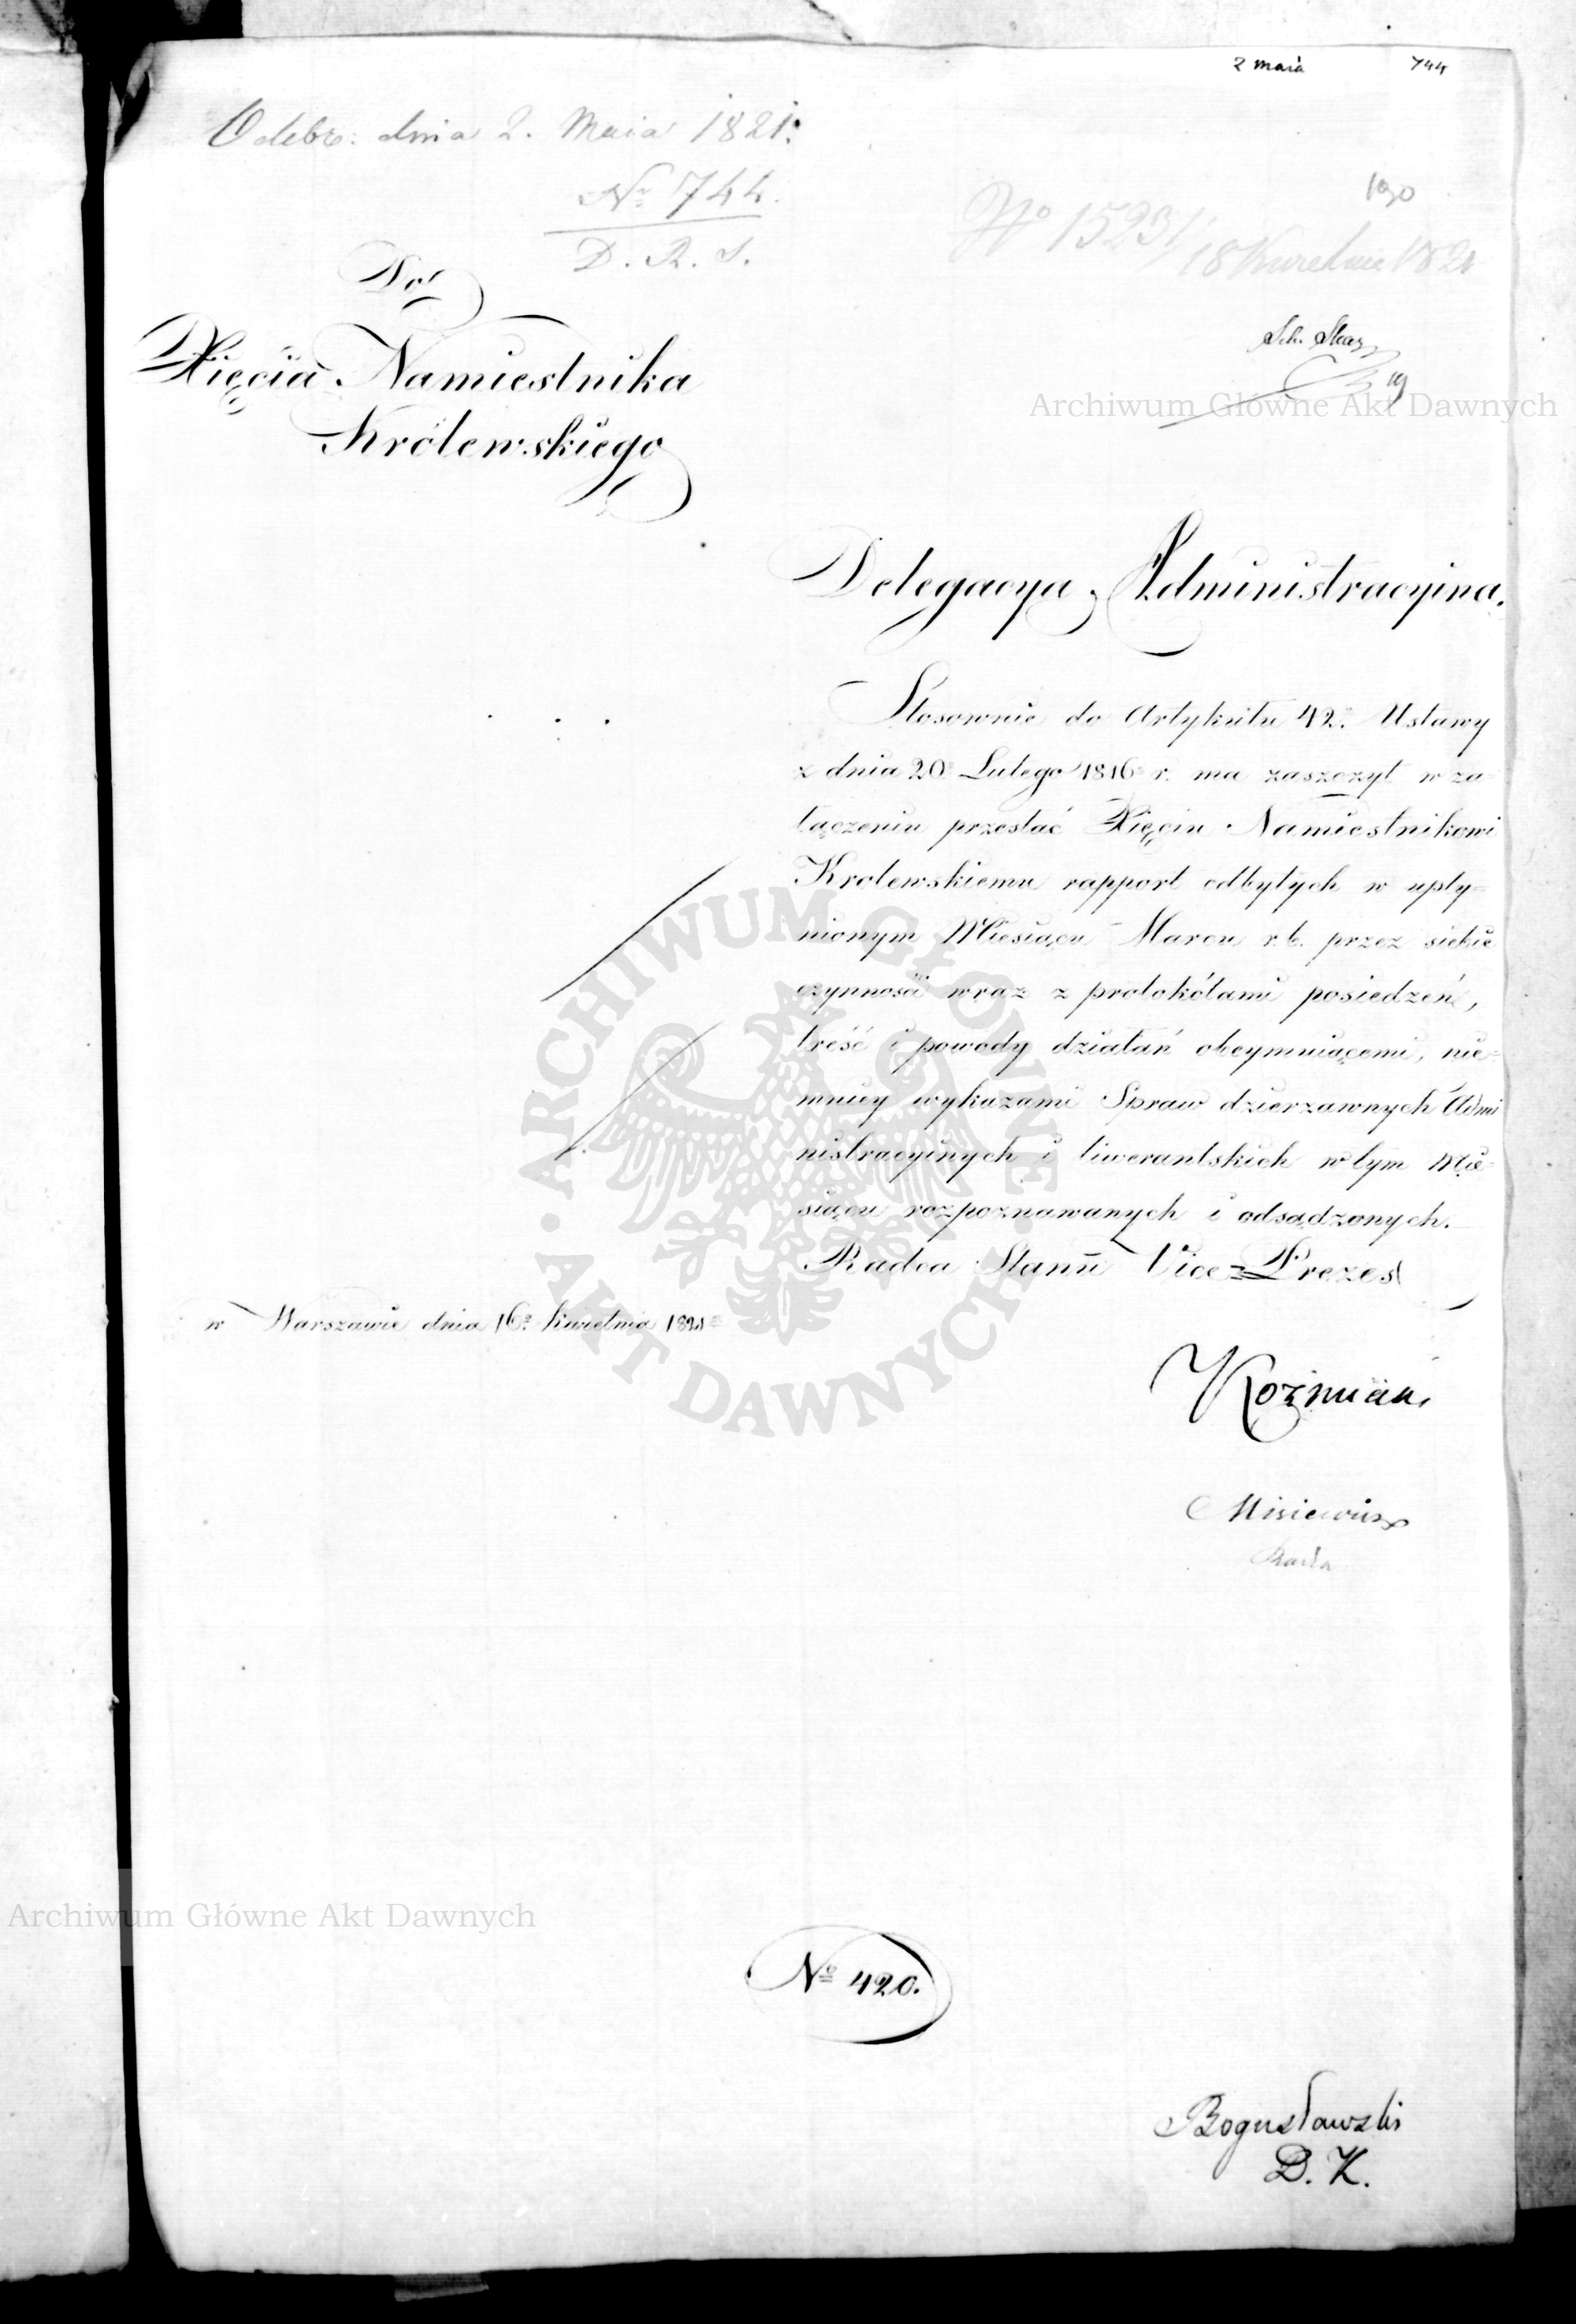 2 maia 744
Odebr: dnia 2. Maia 1821.
No 744.
D. R. S.
190
No 15231
18 Kwietnia 1821
Do
Xięcia Namiestnika
Królewskiego
Archiwum Główne Akt Dawnych
Delegacya Administracyina.
Stosownie do Artykułu 42. Ustawy
z dnia 20 Lutego 1816 r. ma zaszczyt w za-
łączeniu przesłać Xięciu Namiestnikowi
Krolewskiemu rapport odbytych w upły=
nionym Miesiącu Marcu r. b. przez siebie
czynności wraz z protokółami posiedzeń,
treść i powody działań obeymuiącemi, nie=
mniey wykazami Spraw dzierzawnych Admi
nistracyinych i liwerantskich w tym Mie=
siącu rozpoznawanych i odsądzonych.
Radca Stanu Vice=Prezes
w Warszawie dnia 16o Kwietnia 1821
Koźmian
Misiewicz
ARCHIWUM GŁÓWNE
AKT DAWNYCH
Archiwum Główne Akt Dawnych
No 420.
Bogusławski
D. K.